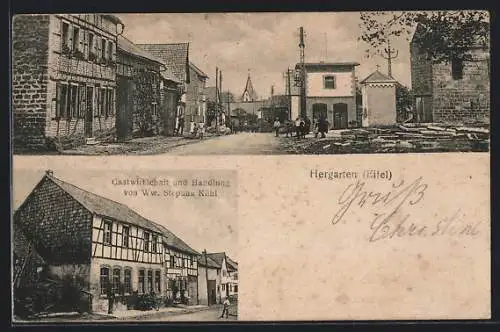 Gastwirtschaft und Handlung
von Ww. Stephan Kühl
Hergarten (Eifel)
Gruß
Christine